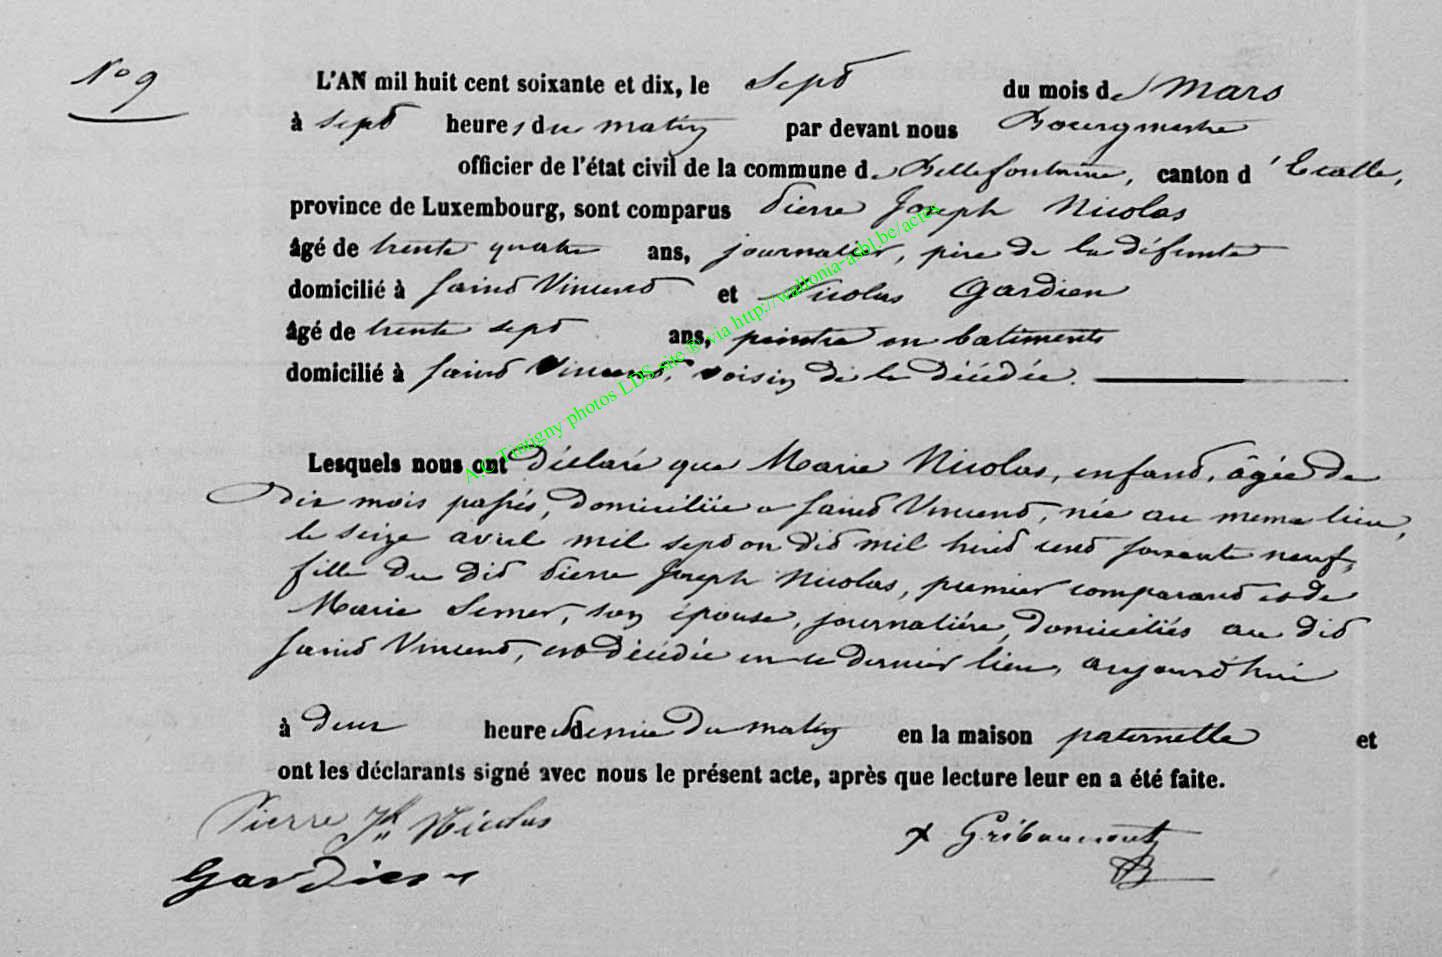 N° 9
L'AN mil huit cent soixante et dix, le sept du mois de Mars
à sept heures du matin par devant nous Bourgmestre
officier de l'état civil de la commune de Bellefontaine, canton d'Etalle,
province de Luxembourg, sont comparus Pierre Joseph Nicolas
âgé de trente quatre ans, journalier, père de la défunte
domicilié à Saint Vincent et Nicolas Gardien
âgé de trente sept ans, peintre en batiments
domicilié à Saint Vincent, voisin de la décédée.
Lesquels nous ont déclaré que Marie Nicolas, enfant, âgée de
dix mois passés, domiciliée a Saint Vincent, née au meme lieu,
le seize avril mil sept on dit mil huit cent soixante neuf,
fille du dit Pierre Joseph Nicolas, premier comparant et de
Marie Semer, son épouse, journalière, domiciliés au dit
Saint Vincent, est décédée en ce dernier lieu, aujourd'hui
à deux heures demie du matin en la maison paternelle et
ont les déclarants signé avec nous le présent acte, après que lecture leur en a été faite.
Pierre Jh Nicolas
Gribaumont
Gardien
A.C Tintigny photos LDS site ® via http://wallonia-asbl.be/actes